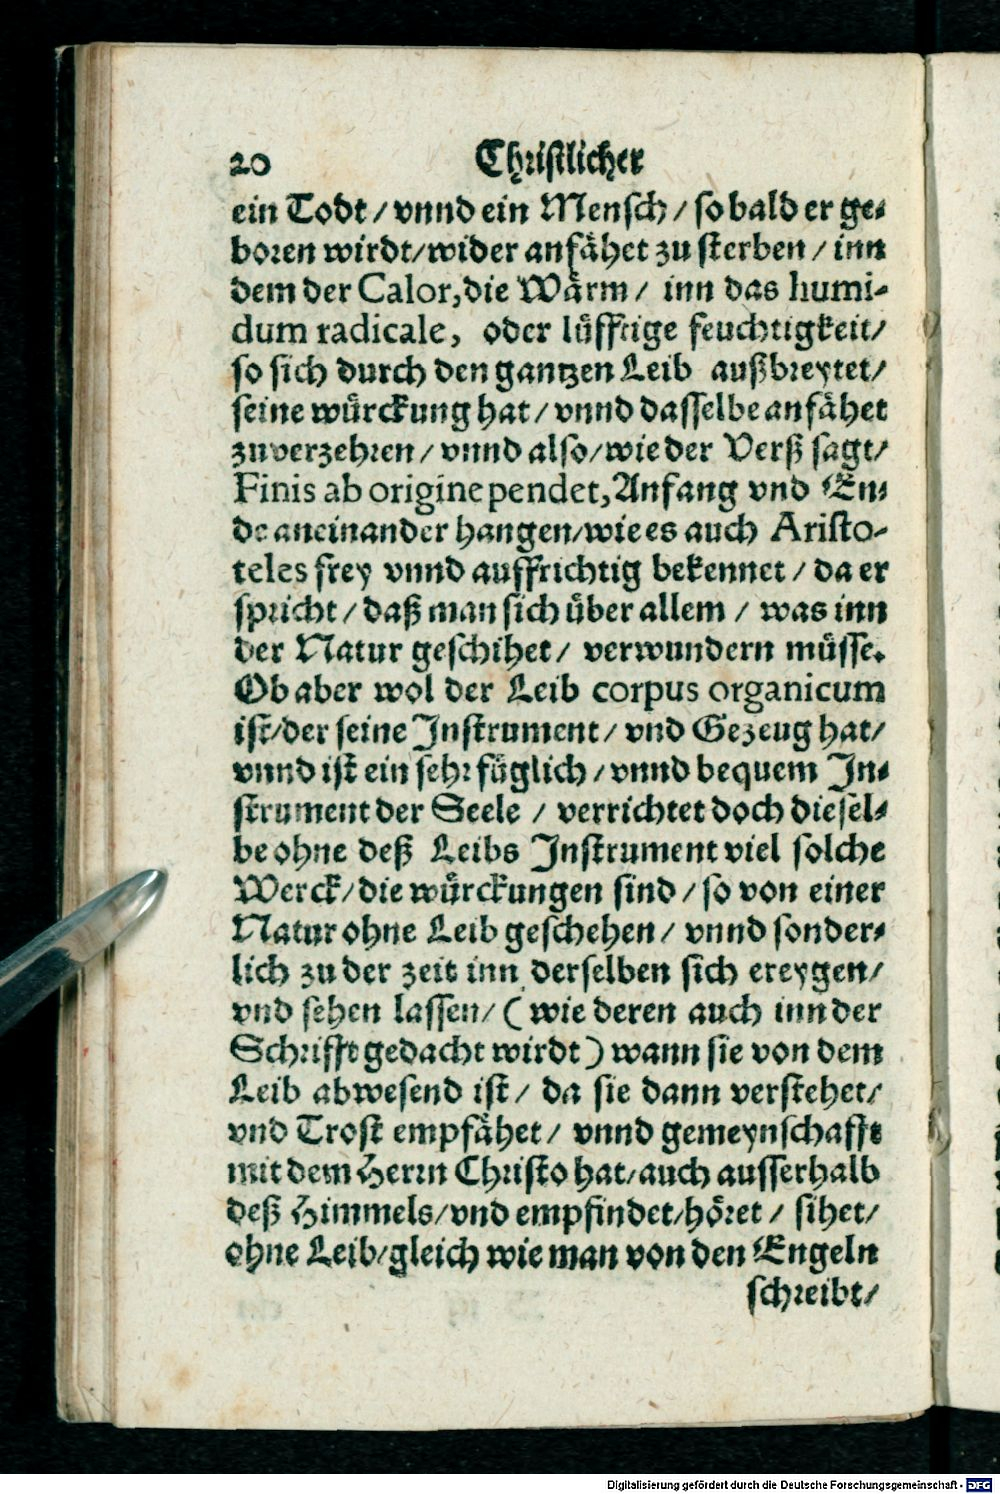 20 Christlicher
ein Todt / vnnd ein Mensch / so bald er ge-
boren wirdt / wider anfåhet zu sterben / inn
dem der Calor, die Wårm / inn das humi-
dum radicale, oder lůfftige feuchtigkeit /
so sich durch den gantzen Leib außbreytet /
seine wůrckung hat / vnnd dasselbe anfåhet
zu verzehren / vnnd also / wie der Verß sagt /
Finis ab origine pendet, Anfang vnd En-
de aneinander hangen / wie es auch Aristo-
teles frey vnnd auffrichtig bekennet / da er
spricht / daß man sich ůber allem / was inn
der Natur geschihet / verwundern můsse.
Ob aber wol der Leib corpus organicum
ist / der seine Instrument / vnd Gezeug hat /
vnnd ist ein sehr fůglich / vnnd bequem In-
strument der Seele / verrichtet doch diesel-
be ohne deß Leibs Instrument viel solche
Werck / die wůrckungen sind / so von einer
Natur ohne Leib geschehen / vnnd sonder-
lich zu der zeit inn derselben sich ereygen /
vnd sehen lassen / ( wie deren auch inn der
Schrifft gedacht wirdt ) wann sie von dem
Leib abwesend ist / da sie dann verstehet /
vnd Trost empfåhet / vnnd gemeynschafft
mit dem Herrn Christo hat / auch ausserhalb
deß Himmels / vnd empfindet / hőret / sihet /
ohne Leib / gleich wie man von den Engeln
schreibt /
Digitalisierung gefördert durch die Deutsche Forschungsgemeinschaft - DFG